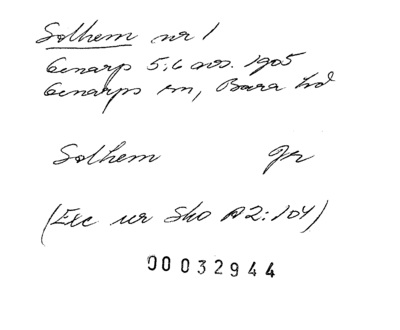 Solhem nr 1
Genarp 5:6 avs. 1905
Genarps sn, Bara hd
Solhem Gr
(Exc ur Sko A2:104)
00032944